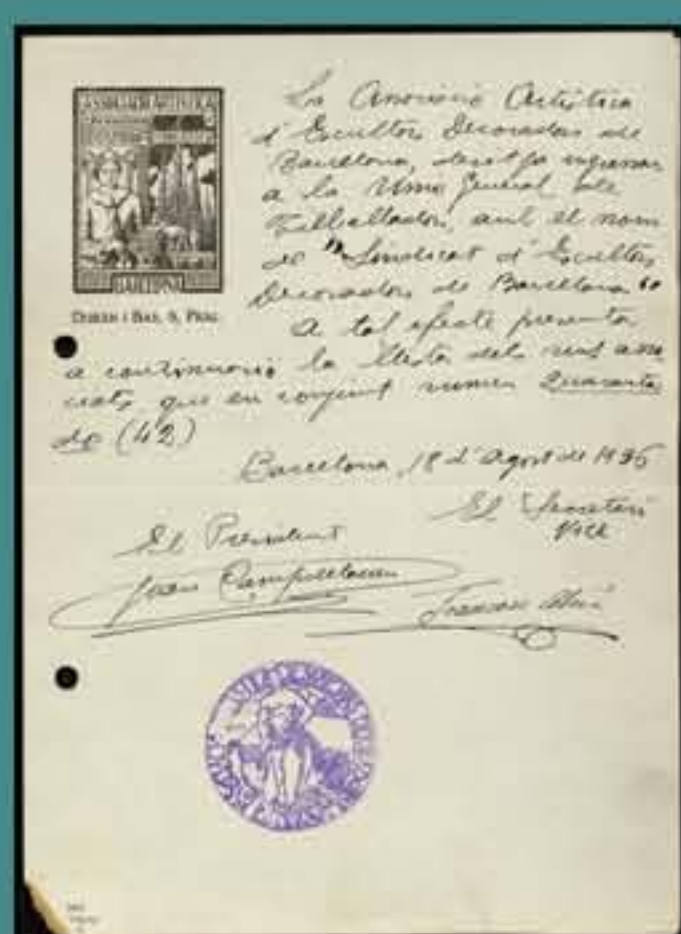 ASSOCIACIÓ ARTÍSTICA
BARCELONA
DURAN I BAS, 9, PRAL.
La Associació Artística
d'Escultors Decoradors de
Barcelona, desitja ingressar
a la Unió General de
Treballadors, amb el nom
de "Sindicat d'Escultors
Decoradors de Barcelona"
A tal efecte presenta
a continuació la llista dels seus asso
ciats que en conjunt sumen Quaranta
dos (42)
Barcelona, 18 d'Agost de 1936
El Secretari
Vice
El President
Joan
Francesc